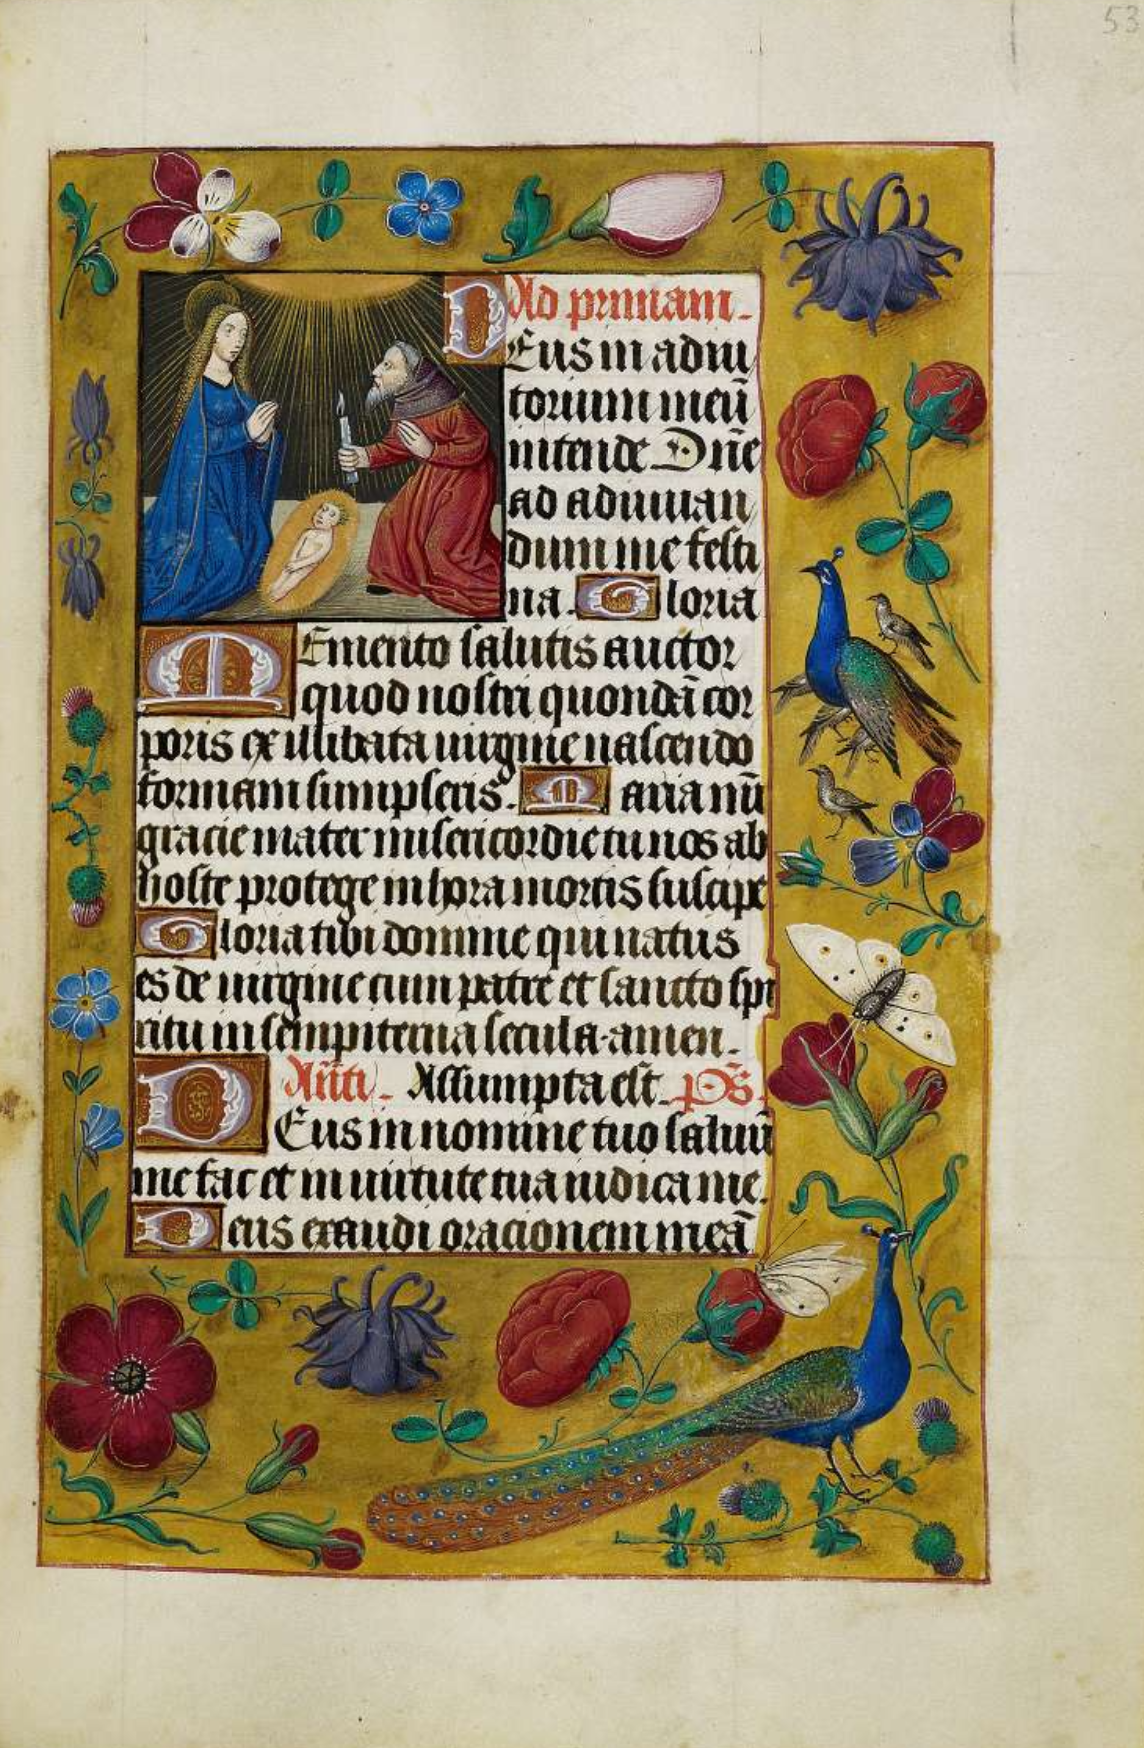 53
Ad primam.
Deus in adiu
torium meū
intende. Dñe
ad adiuuan
dum me festi
na. Gloria
Memento salutis auctor
quod nostri quondā cor
poris ex illibata uirgine nascendo
formam sumpseris. Maria nū
gracie mater misericordie tu nos ab
hoste protege in hora mortis suscipe
Gloria tibi domine qui natus
es de uirgine cum patre et sancto spi
ritu in sempiterna secula. amen.
Añti. Assumpta est. Ps̄.
Deus in nomine tuo saluū
me fac et in uirtute tua iudica me.
Deus exaudi oracionem meā